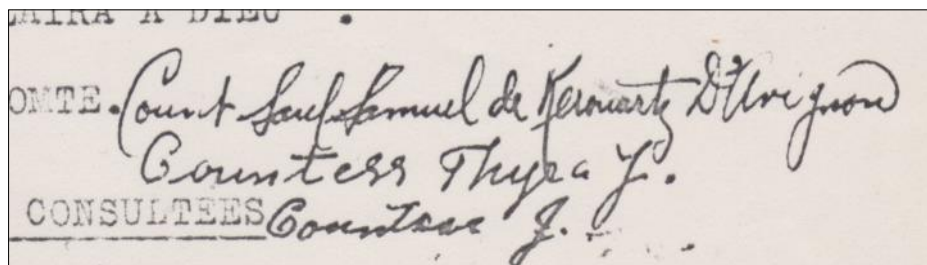 PLAIRA A DIEU".
OMTE. Count Saul Samuel de Kerouartz D'Avignon
Countess Thyra Y.
CONSULTEES Countess J.